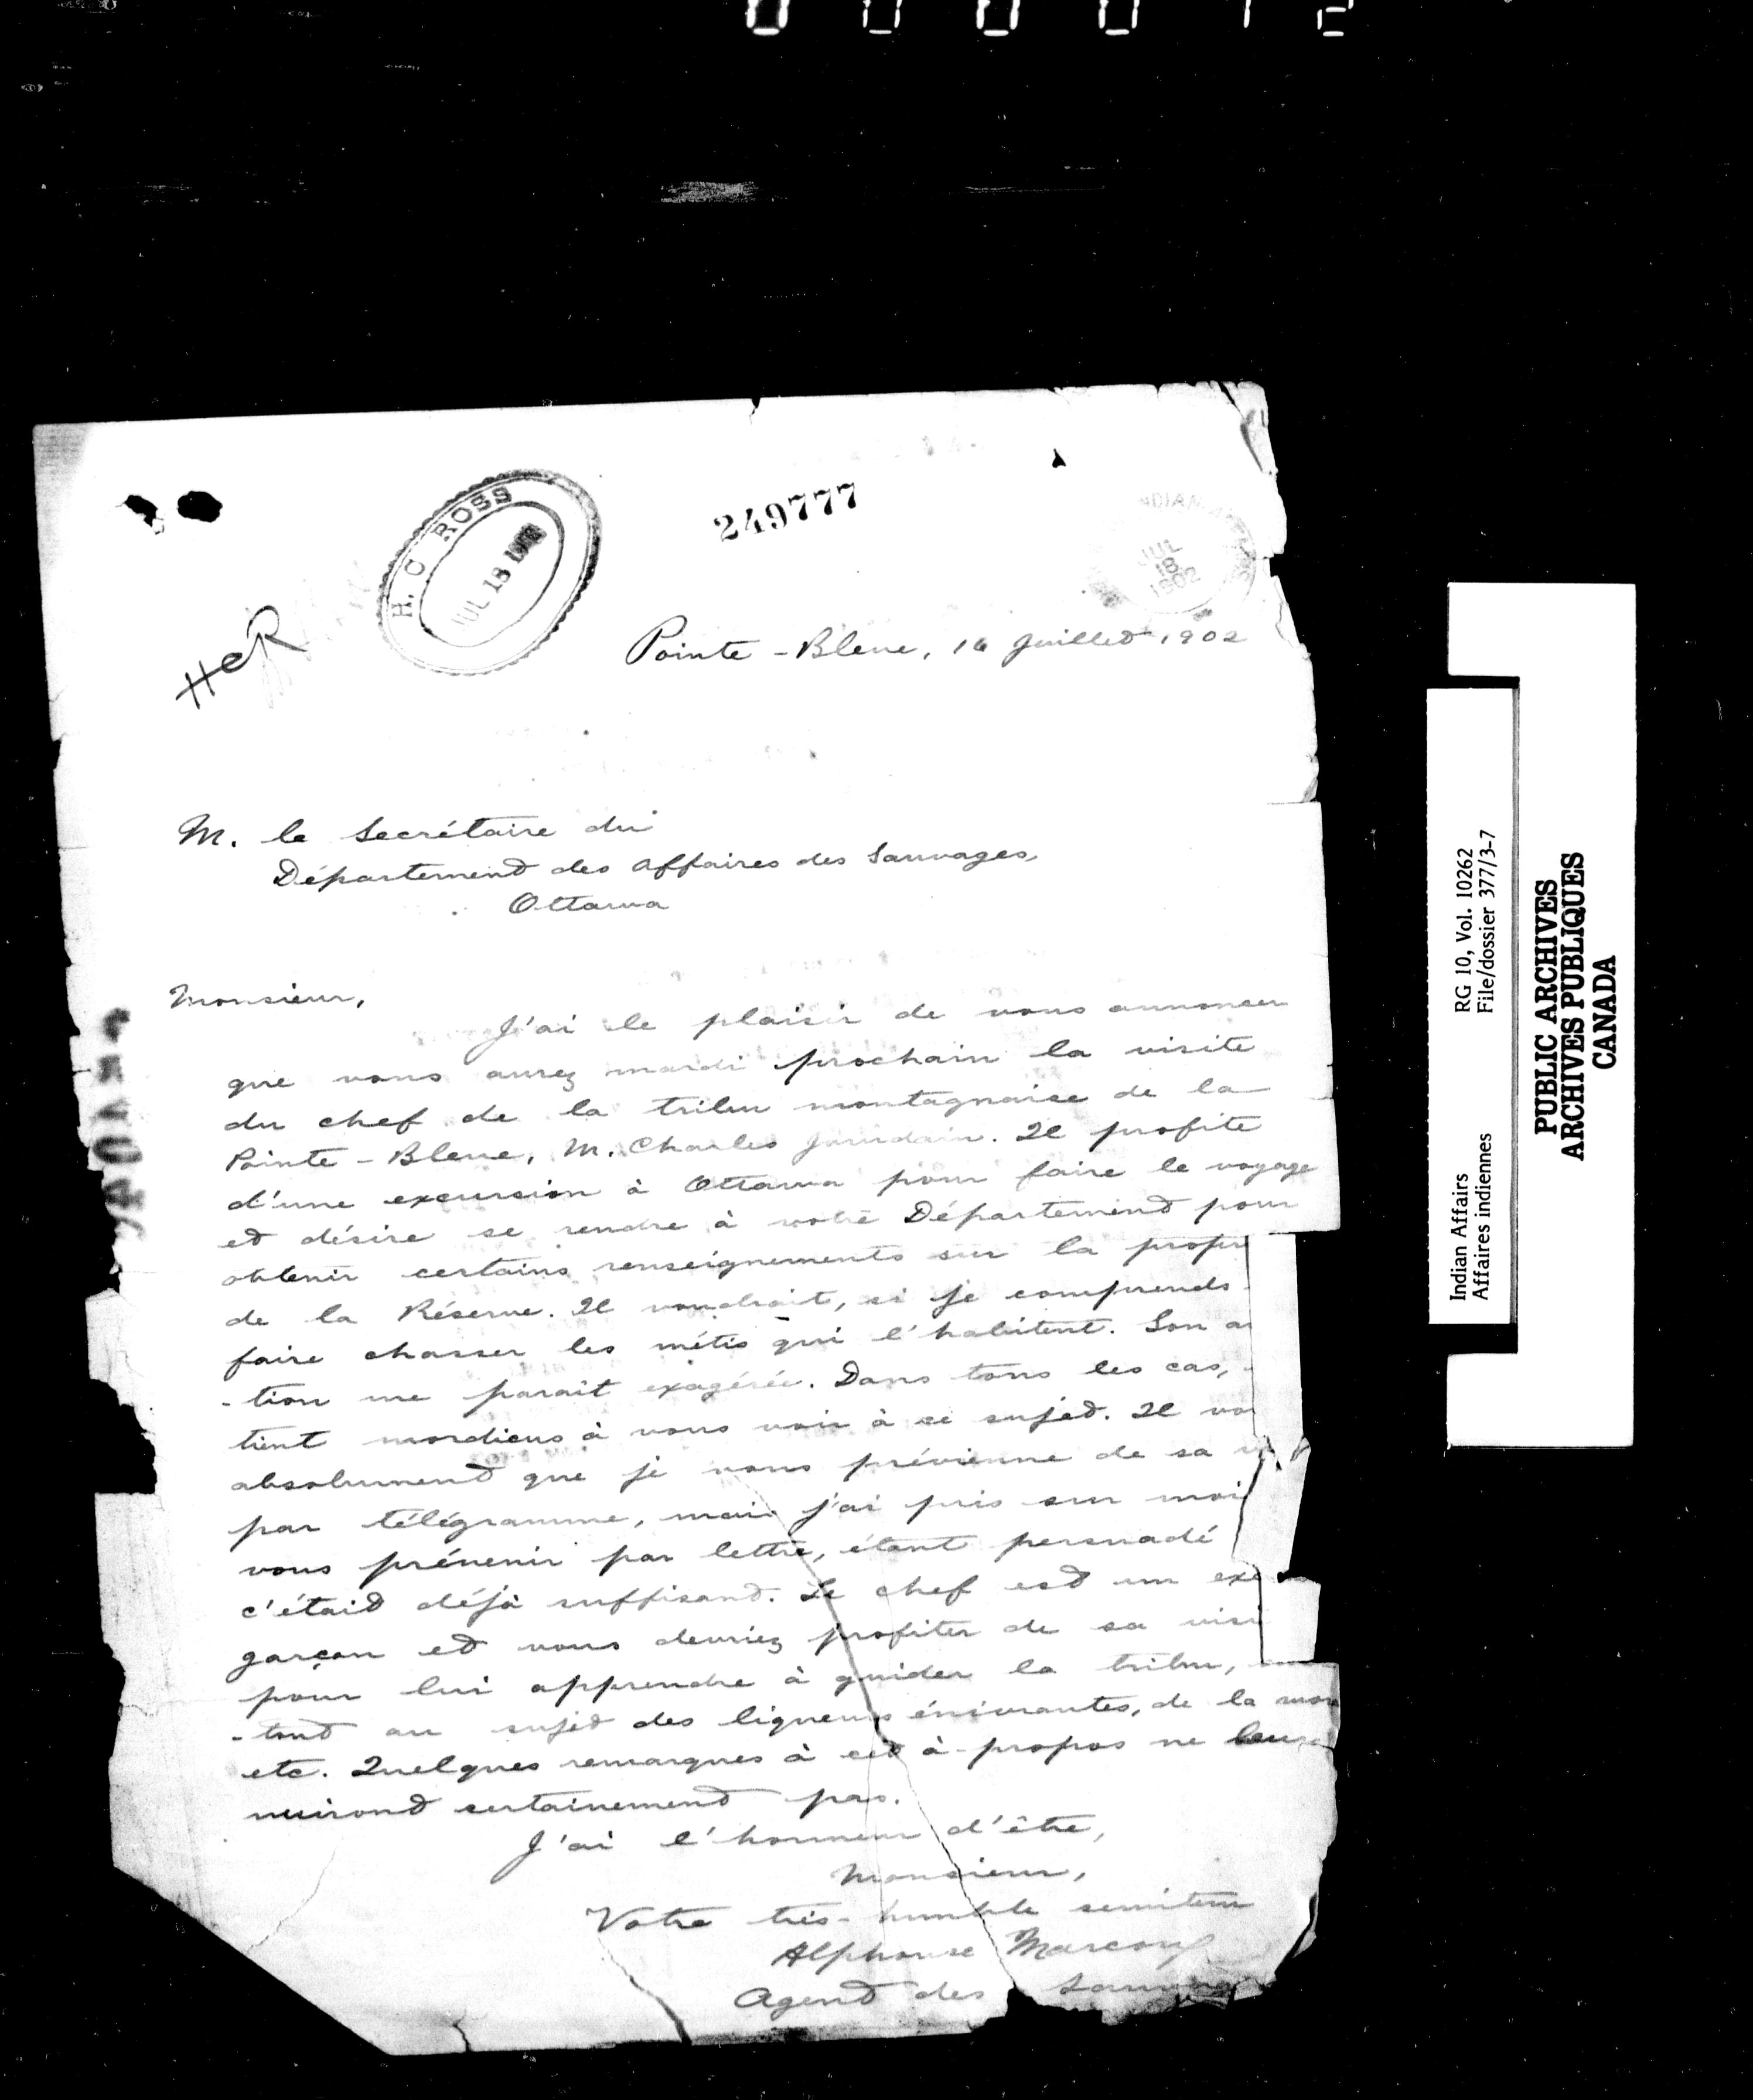 000012
H. C ROSS
JUL 18
249777
INDIAN
JUL
18
1902
HCR
Pointe-Bleue, 16 Juillet 1902
M. le Secrétaire du
Département des Affaires des Sauvages,
Ottawa
Monsieur,
J'ai le plaisir de vous annoncer
que vous aurez mardi prochain la visite
du chef de la tribu montagnaise de la
Pointe-Bleue, M. Charles Jourdain. Il profite
d'une excursion à Ottawa pour faire le voyage
et désire se rendre à votre Département pour
obtenir certains renseignements sur la propri
de la Réserve. Il voudrait, si je comprends
faire chasser les métis qui l'habitent. Son a
-tion me parait exagérée. Dans tous les cas,
tient mordicus à vous voir à ce sujet. Il vo
absolument que je vous prévienne de sa vi
par télégramme, mais j'ai pris sur moi
vous prévenir par lettre, étant persuadé
c'était déjà suffisant. Le chef est un exc
garçon et vous devriez profiter de sa visi
pour lui apprendre à guider la tribu,
-tout au sujet des liqueurs énivrantes, de la mor
etc. Quelques remarques à cet à-propos ne leur
nuiront certainement pas.
J'ai l'honneur d'être,
Monsieur,
Votre très-humble serviteur
Alphonse Marcoux
Agent des Sauvag
Indian Affairs RG 10, Vol. 10262
Affaires indiennes File/dossier 377/3-7
PUBLIC ARCHIVES
ARCHIVES PUBLIQUES
CANADA